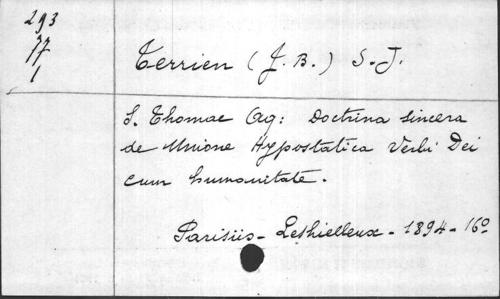 293
77
1
Terrien (J. B.) S. J.
S. Thomae Aq: Doctrina sincera
de Unione Hypostatica Verbi Dei
cum humanitate.
Parisiis - Lethielleux - 1894 - 16º